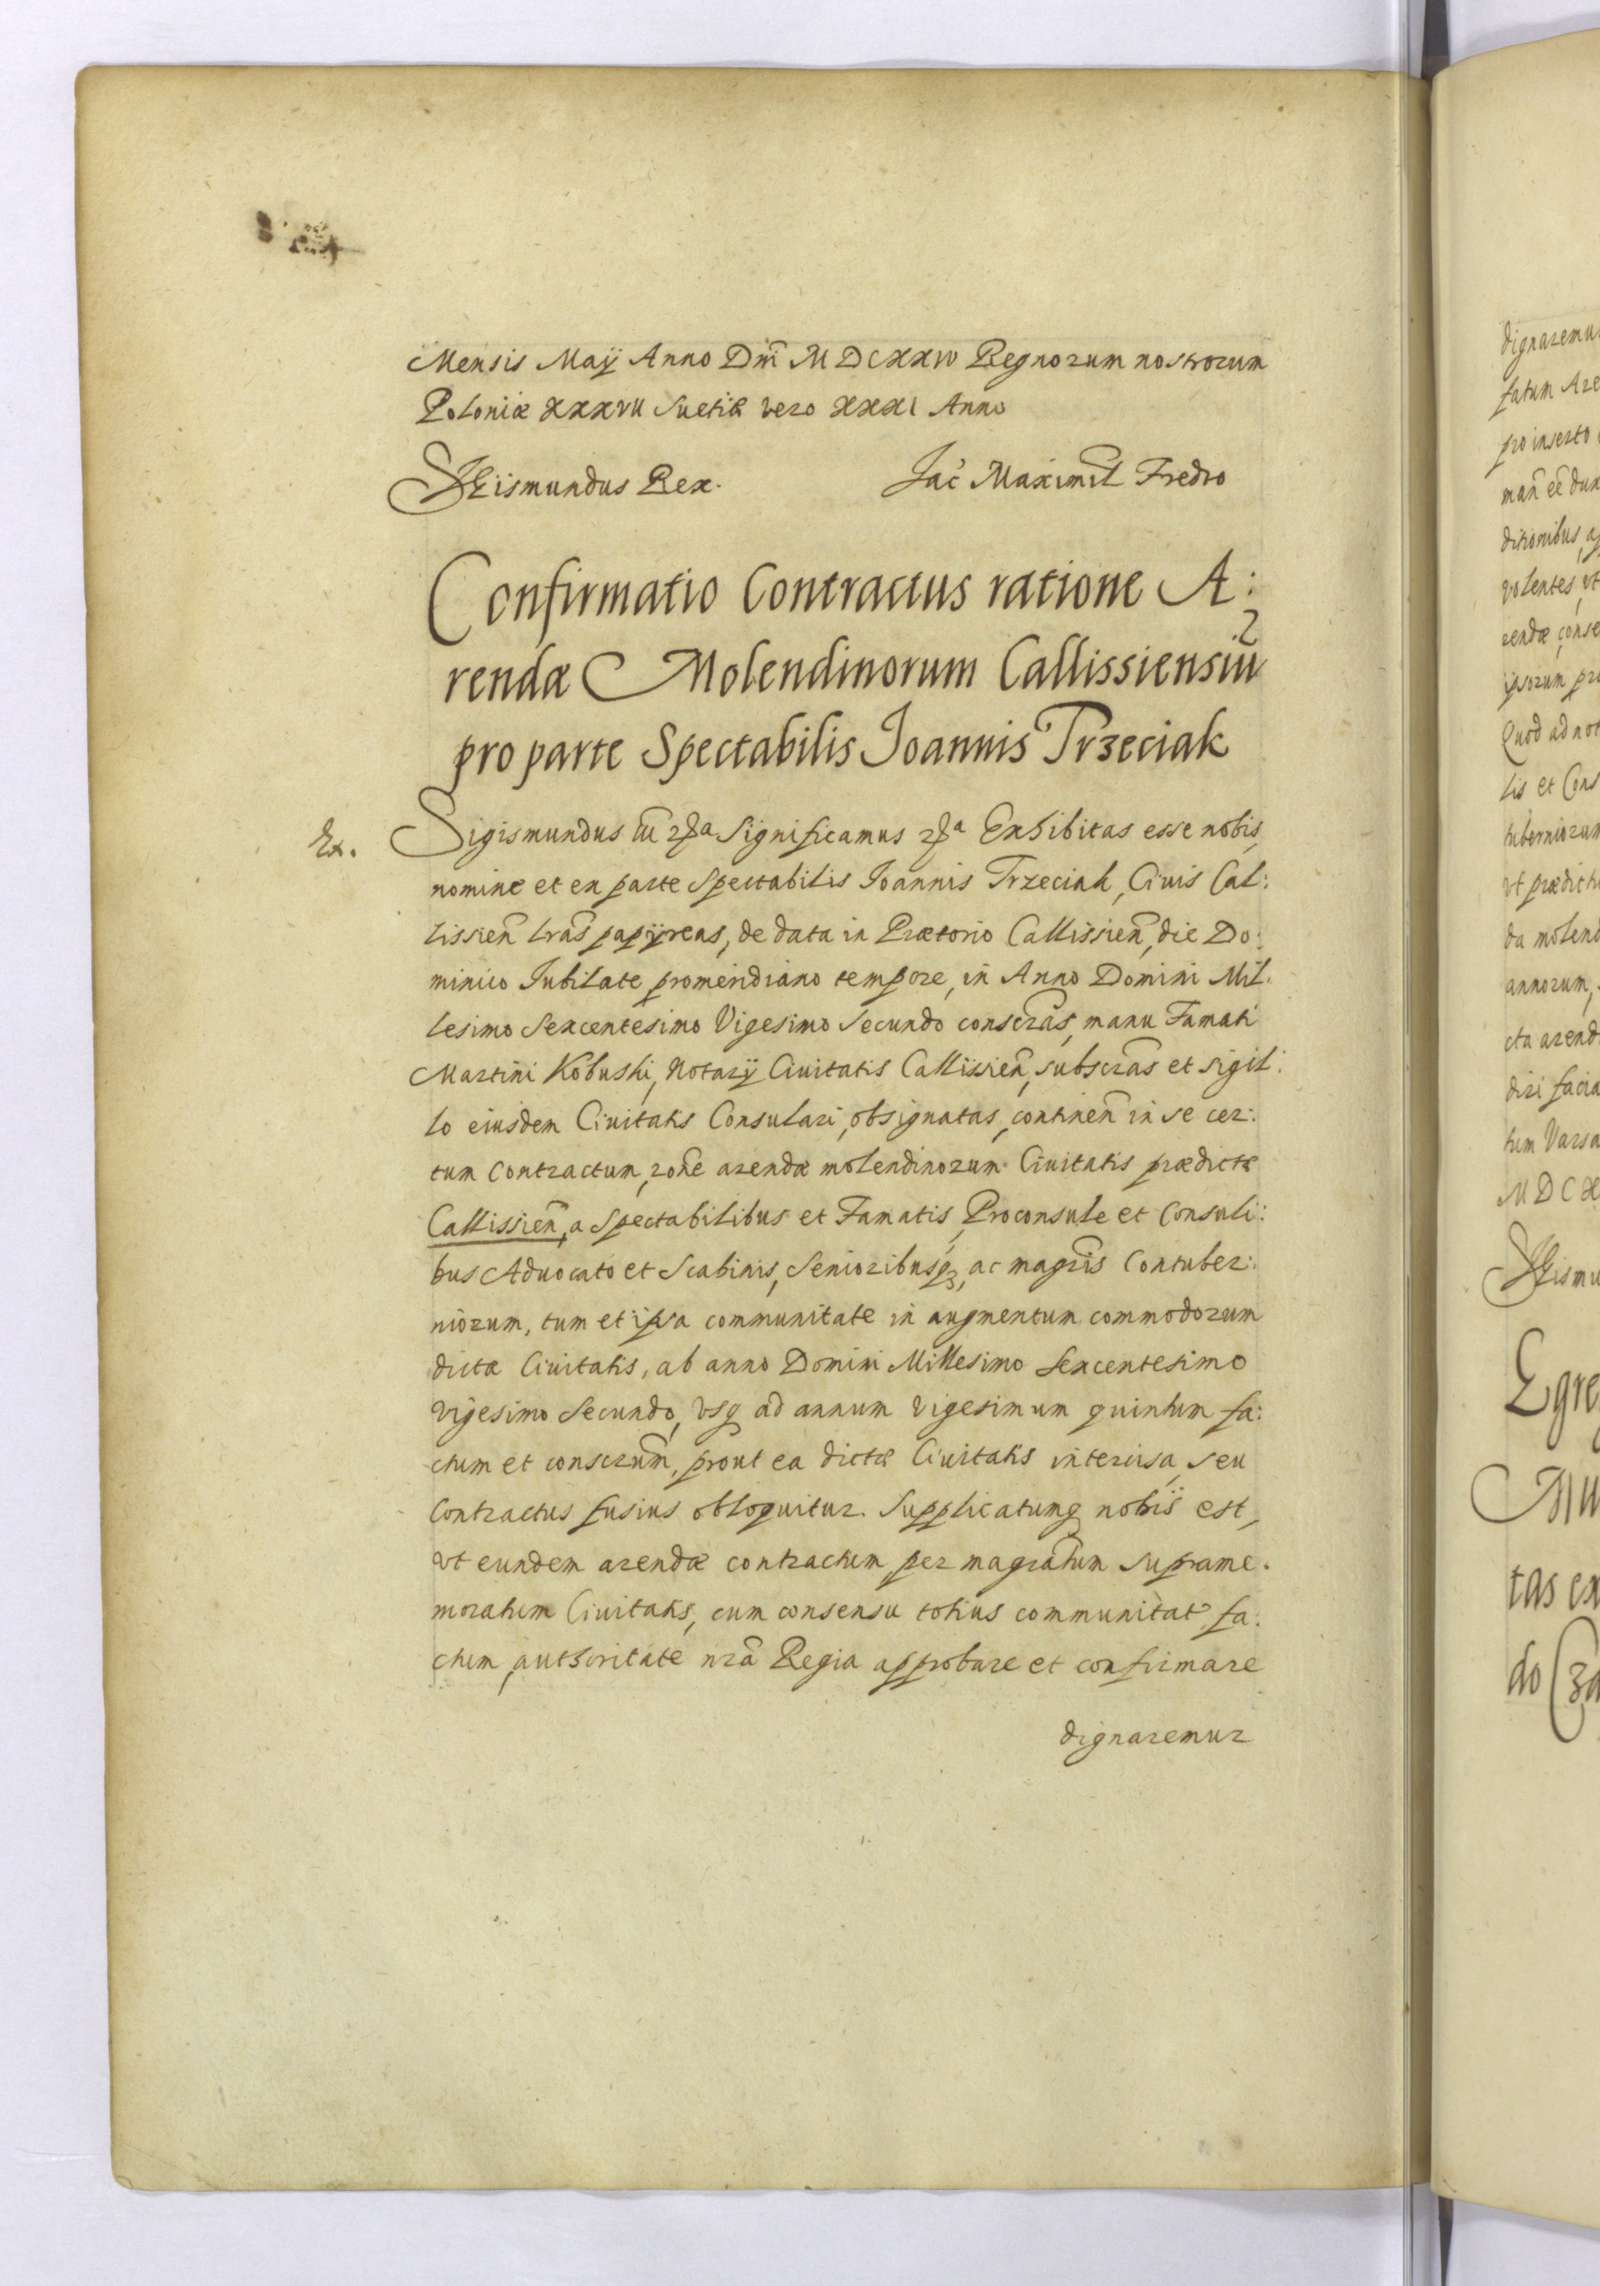 Mensis Maÿ Anno Dnĩ M DCXXIV Regnorum nostrorum
Poloniæ XXXVII Suetiæ vero XXXI Anno
Sigismundus Rex.
Jac Maximil Fredro
Confirmatio Contractus ratione A:
rendæ Molendinorum Callissiensiũ
pro parte Spectabilis Joannis Trzeciak
Ex.
Sigismundus Significamus Exhibitas esse nobis,
nomine et ex parte Spectabilis Joannis Trzeciak, Ciuis Cal:
lissieñ lrãs papÿreas, de data in Prætorio Callissieñ, die Do:
minico Jubilate promeridiano tempore, in Anno Domini Mil:
lesimo Sexcentesimo Vigesimo Secundo conscrãs, manu Famati
Martini Kobuski, Notarÿ Ciuitatis Callissieñ, subscrãs et sigil:
lo eiusdem Ciuitatis Consulari, obsignatas, contineñ in se cer:
tum Contractum, rõne arendæ molendinorum Ciuitatis prædictæ
Callissieñ, a Spectabilibus et Famatis, Proconsule et Consuli:
bus Aduocato et Scabinis, Senioribusq, ac magrĩs Contuber:
niorum, tum et ipsa communitate in augmentum commodorum
dictæ Ciuitatis, ab anno Domini Millesimo Sexcentesimo
vigesimo Secundo, vsq ad annum vigesimum quintum fa:
ctum et conscrũm, prout ea dictæ Ciuitatis intercisa, seu
Contractus fusius obloquitur. Supplicatumq nobis est,
vt eundem arendæ contractum per magrãtum suprame:
moratum Ciuitatis, cum consensu totius communitat fa:
ctum, authoritate nrã Regia approbare et confirmare
dignaremur
dignaremur
fatum Are
pro inserto
mañ eẽ dux
ditionibus, a
volentes, vt
rendæ, conse
ipsorum pr
Quod ad not
lis et Cons
tuberniorum
vt prædicti
da molend
annorum,
cta arend
diri facia
tum Varsa
M D C X
Sigismu
Egre
Mu
tas ex
do Cza